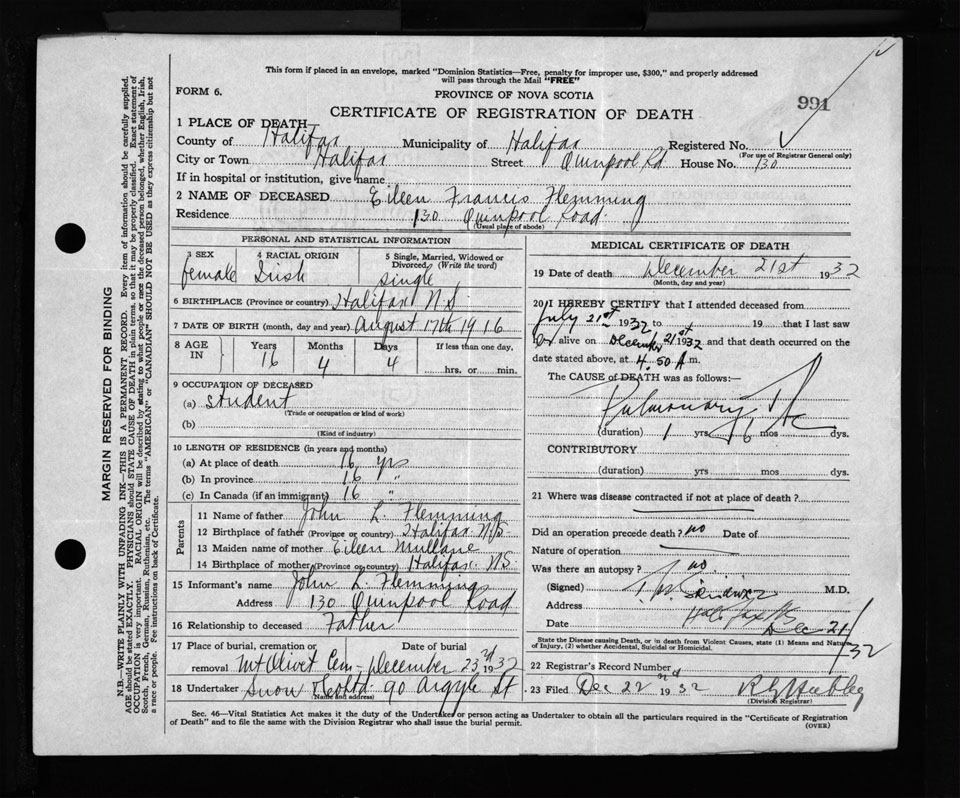 This form if placed in an envelope, marked "Dominion Statistics—Free, penalty for improper use, $300," and properly addressed
will pass through the Mail "FREE"
FORM 6.
PROVINCE OF NOVA SCOTIA
991
CERTIFICATE OF REGISTRATION OF DEATH
1 PLACE OF DEATH—
County of Halifax Municipality of Halifax Registered No.
(For use of Registrar General only)
City or Town Halifax Street Quinpool Rd House No. 130
If in hospital or institution, give name
2 NAME OF DECEASED Eileen Francis Flemming
Residence 130 Quinpool Road
(Usual place of abode)
PERSONAL AND STATISTICAL INFORMATION
3 SEX female
4 RACIAL ORIGIN Irish
5 Single, Married, Widowed or Divorced (Write the word) single
6 BIRTHPLACE (Province or country) Halifax N.S.
7 DATE OF BIRTH (month, day and year) August 17th 1916
8 AGE IN Years 16 Months 4 Days 4 If less than one day, hrs. or min.
9 OCCUPATION OF DECEASED
(a) Student
(Trade or occupation or kind of work)
(b)
(Kind of industry)
10 LENGTH OF RESIDENCE (in years and months)
(a) At place of death 16 yrs
(b) In province 16 "
(c) In Canada (if an immigrant) 16 "
Parents
11 Name of father John L. Flemming
12 Birthplace of father (Province or country) Halifax N.S.
13 Maiden name of mother Eileen Mullane
14 Birthplace of mother (Province or country) Halifax NS
15 Informant's name John L. Flemming
Address 130 Quinpool Road
16 Relationship to deceased Father
17 Place of burial, cremation or removal Mt Olivet Cem Date of burial December 23rd 1932
18 Undertaker Snow & Co Ltd 90 Argyle St
(Name and address)
MEDICAL CERTIFICATE OF DEATH
19 Date of death December 21st 1932
(Month, day and year)
20 I HEREBY CERTIFY that I attended deceased from
July 21st 1932 to 19 that I last saw
her alive on December 21 1932 and that death occurred on the
date stated above, at 4.50 A m.
The CAUSE of DEATH was as follows:—
Pulmonary
(duration) 1 yrs 6 mos dys.
CONTRIBUTORY
(duration) yrs. mos. dys.
21 Where was disease contracted if not at place of death?
Did an operation precede death? no Date of
Nature of operation
Was there an autopsy? no
(Signed) M.D.
Address Halifax NS
Date Dec 21/32
State the Disease causing Death, or in death from Violent Causes, state (1) Means and Nature
of Injury, (2) whether Accidental, Suicidal or Homicidal.
22 Registrar's Record Number
23 Filed Dec 22nd 1932
(Division Registrar)
Sec. 46—Vital Statistics Act makes it the duty of the Undertaker or person acting as Undertaker to obtain all the particulars required in the "Certificate of Registration
of Death" and to file the same with the Division Registrar who shall issue the burial permit.
(OVER)
MARGIN RESERVED FOR BINDING
N.B.—WRITE PLAINLY WITH UNFADING INK—THIS IS A PERMANENT RECORD. Every item of information should be carefully supplied.
AGE should be stated EXACTLY. PHYSICIANS should STATE CAUSE OF DEATH in plain terms, so that it may be properly classified. Exact statement of
OCCUPATION is very important. RACIAL ORIGIN will be described by stating to what people or race the deceased person belonged, whether English, Irish,
Scotch, French, German, Russian, Ruthenian, etc. The terms "AMERICAN" or "CANADIAN" SHOULD NOT BE USED as they express citizenship but not
a race or people. See instructions on back of Certificate.